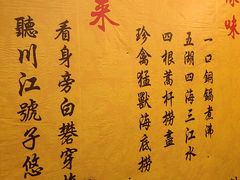 味
一口銅鍋煮沸
五湖四海三江水
四根蒿杆捞盡
珍禽猛獸海底捞
来
看身旁白礬穿
聽川江號子悠